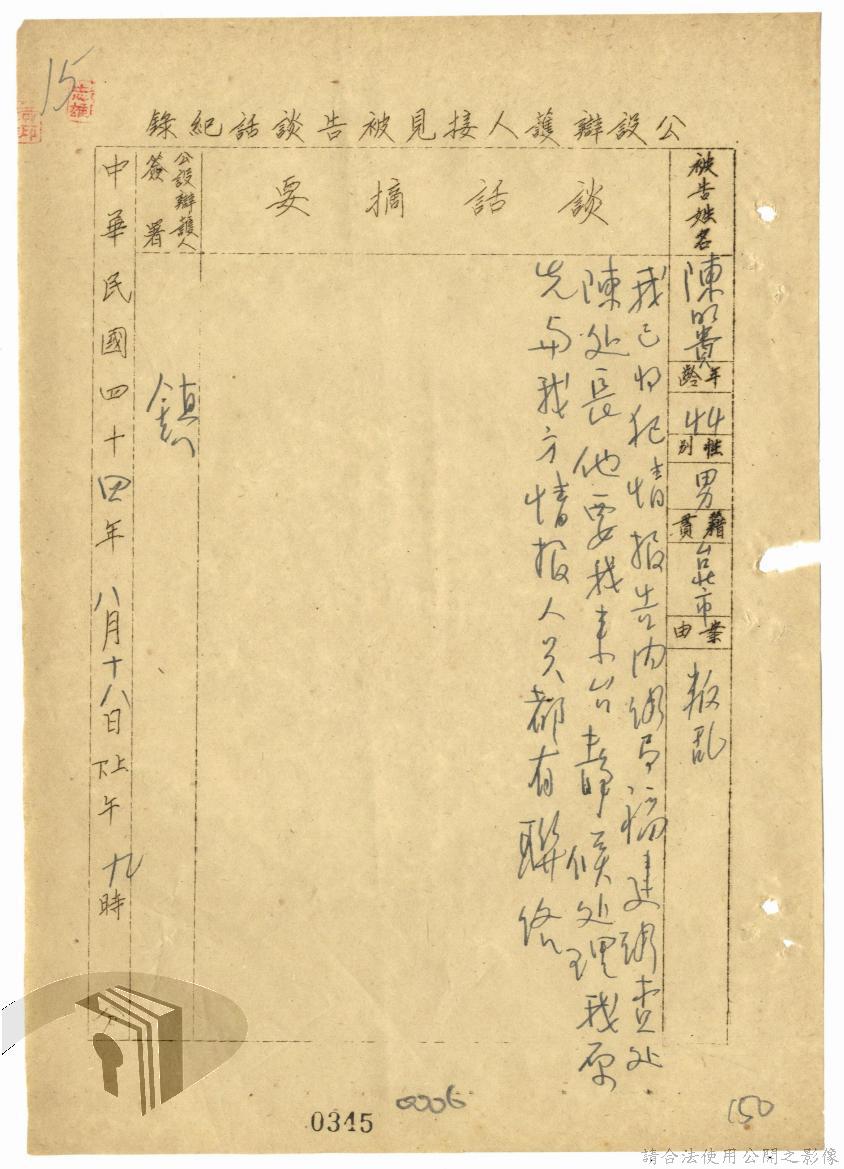 15
志雄
公設辯護人接見被告談話紀錄
被告姓名
陳明貴
年齡
44
性別
男
籍貫
台北市
案由
叛乱
談話摘要
我已將犯情报告内
陳处長他要我来台静候处理我原
先與我方情报人员都有聯络
公設辯護人
簽署
鎮
中華民國四十四年八月十八日上下午九時 分
0345
0006
150
請合法使用公開之影像